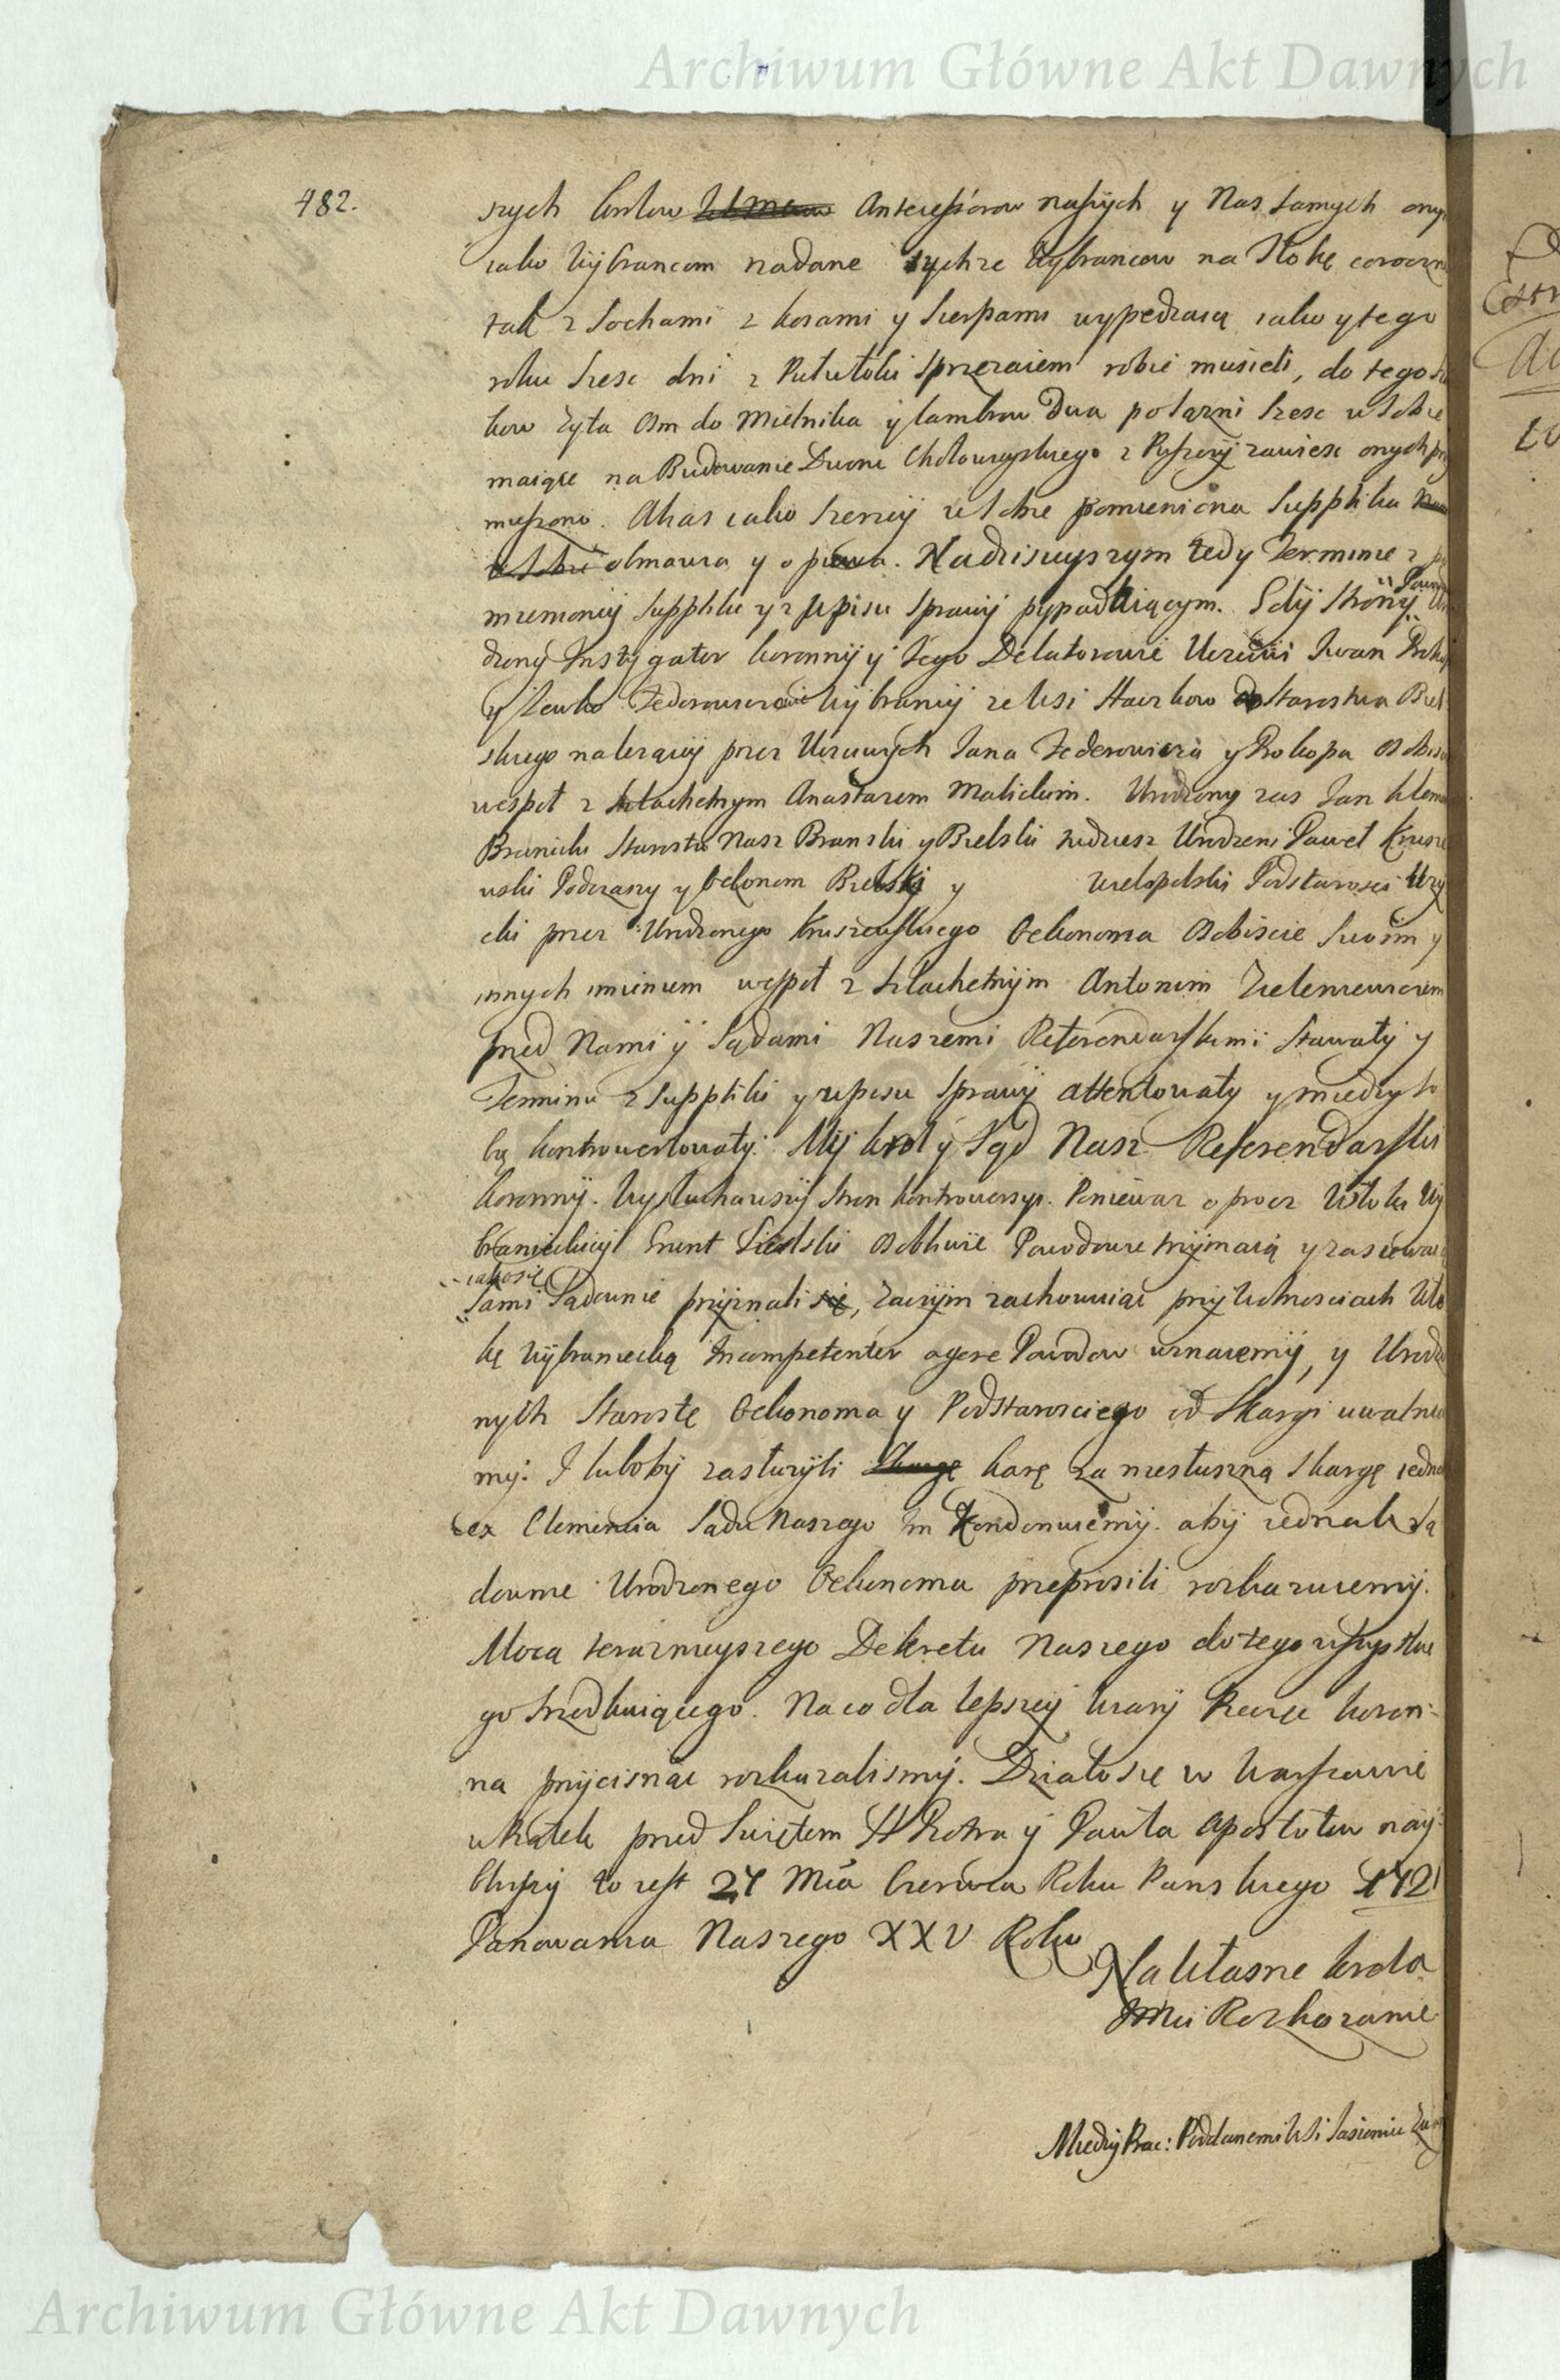 Archiwum Główne Akt Dawnych
482.
szych Krolow Antecessorow naszych y Nas samych
iako Wybrancom nadane tychze Wybrancow na Tlokę coroczn
tak z Sochami z kosami y Sierpami wypędzaią iako y tego
roku szesc dni z Pułułoki Sprzezaiem robic musieli, do tego
kow zyta osm do Mielnika y lamkow Dwa po łazni szesc w Sobie
maiące na Budowanie Dworu Chołowayskiego z Puszczy zawiesc onych
muszono. A kas iako szerzey w Sobie pomieniona Supplika
obmawia y opiewa. Na dzisieyszym tedy Terminie z
mienioney Supplik y z wpisu Sprawy pypadaiącym. Gdy Strony Powod
dzony Instygator koronny y Jego Delatorowie Uczciwi Iwan
y Lewko Fedorowicowie Wybrancy ze Wsi Haczkow do Starostwa Biel
skiego nalezącey przez Uczciwych Jana Fedorowicza y Prokopa Osobis
wespoł z szlachetnym Anastazem Malickim. Urodzony zas Jan Klem
Branicki Starosta Nasz Branski y Bielski tudziesz Urodzeni Paweł Krusze
wski Podczaszy y Oekonom Bielski y Wielopolski Podstarosci
cki przez Urodzonego Kruszewskiego Oekonoma Osobiscie Swoim y
innych imieniem wespoł z szlachetnym Antonim Zieleniewiczem
przed Nami y Sądami Naszemi Referendarskiemi Stawały y
Terminu z Suppliki y wpisu Sprawy attentowały y miedzy so
bą kontrowertowały. My krol y Sąd Nasz Referendarski
koronny. Wysłuchawszy stron kontrowersyi. Poniewaz oprocz Włoki Wy
branieckiey Grunt Sielski Osobliwie Powodowie trzymaią y zasiewaią
iakosię
Sami Sądownie przyznali, zaczym zachowuiąc przy Wolnosciach Wło
kę Wybraniecką Incompetenter agere Powodow uznaiemy, y Urodzo
nych Starostę Oekonoma y Podstarosciego od Skargi uwalnia
my. I luboby zasłuzyli karę za niesłuszną Skargę iedna
ex Clementia Sądu Naszego Im kondonuiemy. aby iednak Są
downie Urodzonego Oekonoma przeprosili rozkazuiemy.
Mocą teraznieyszego Dekretu Naszego do tego wszystkie
go srzedkuiącego. Na co dla lepszey wiary Pieczęc koron-
na przycisnąc rozkazalismy. Działo się w Warszawie
w Piątek przed Swiętem SS Piotra y Pawła Apostołow nay
blizszy to iest 27 Mca Czerwca Roku Panskiego 1721
Panowania Naszego XXV Roku
Na Własne krola
Jmci Rozkazanie
Miedzy Prac: Poddanemi Wsi Sasiemie
Archiwum Główne Akt Dawnych